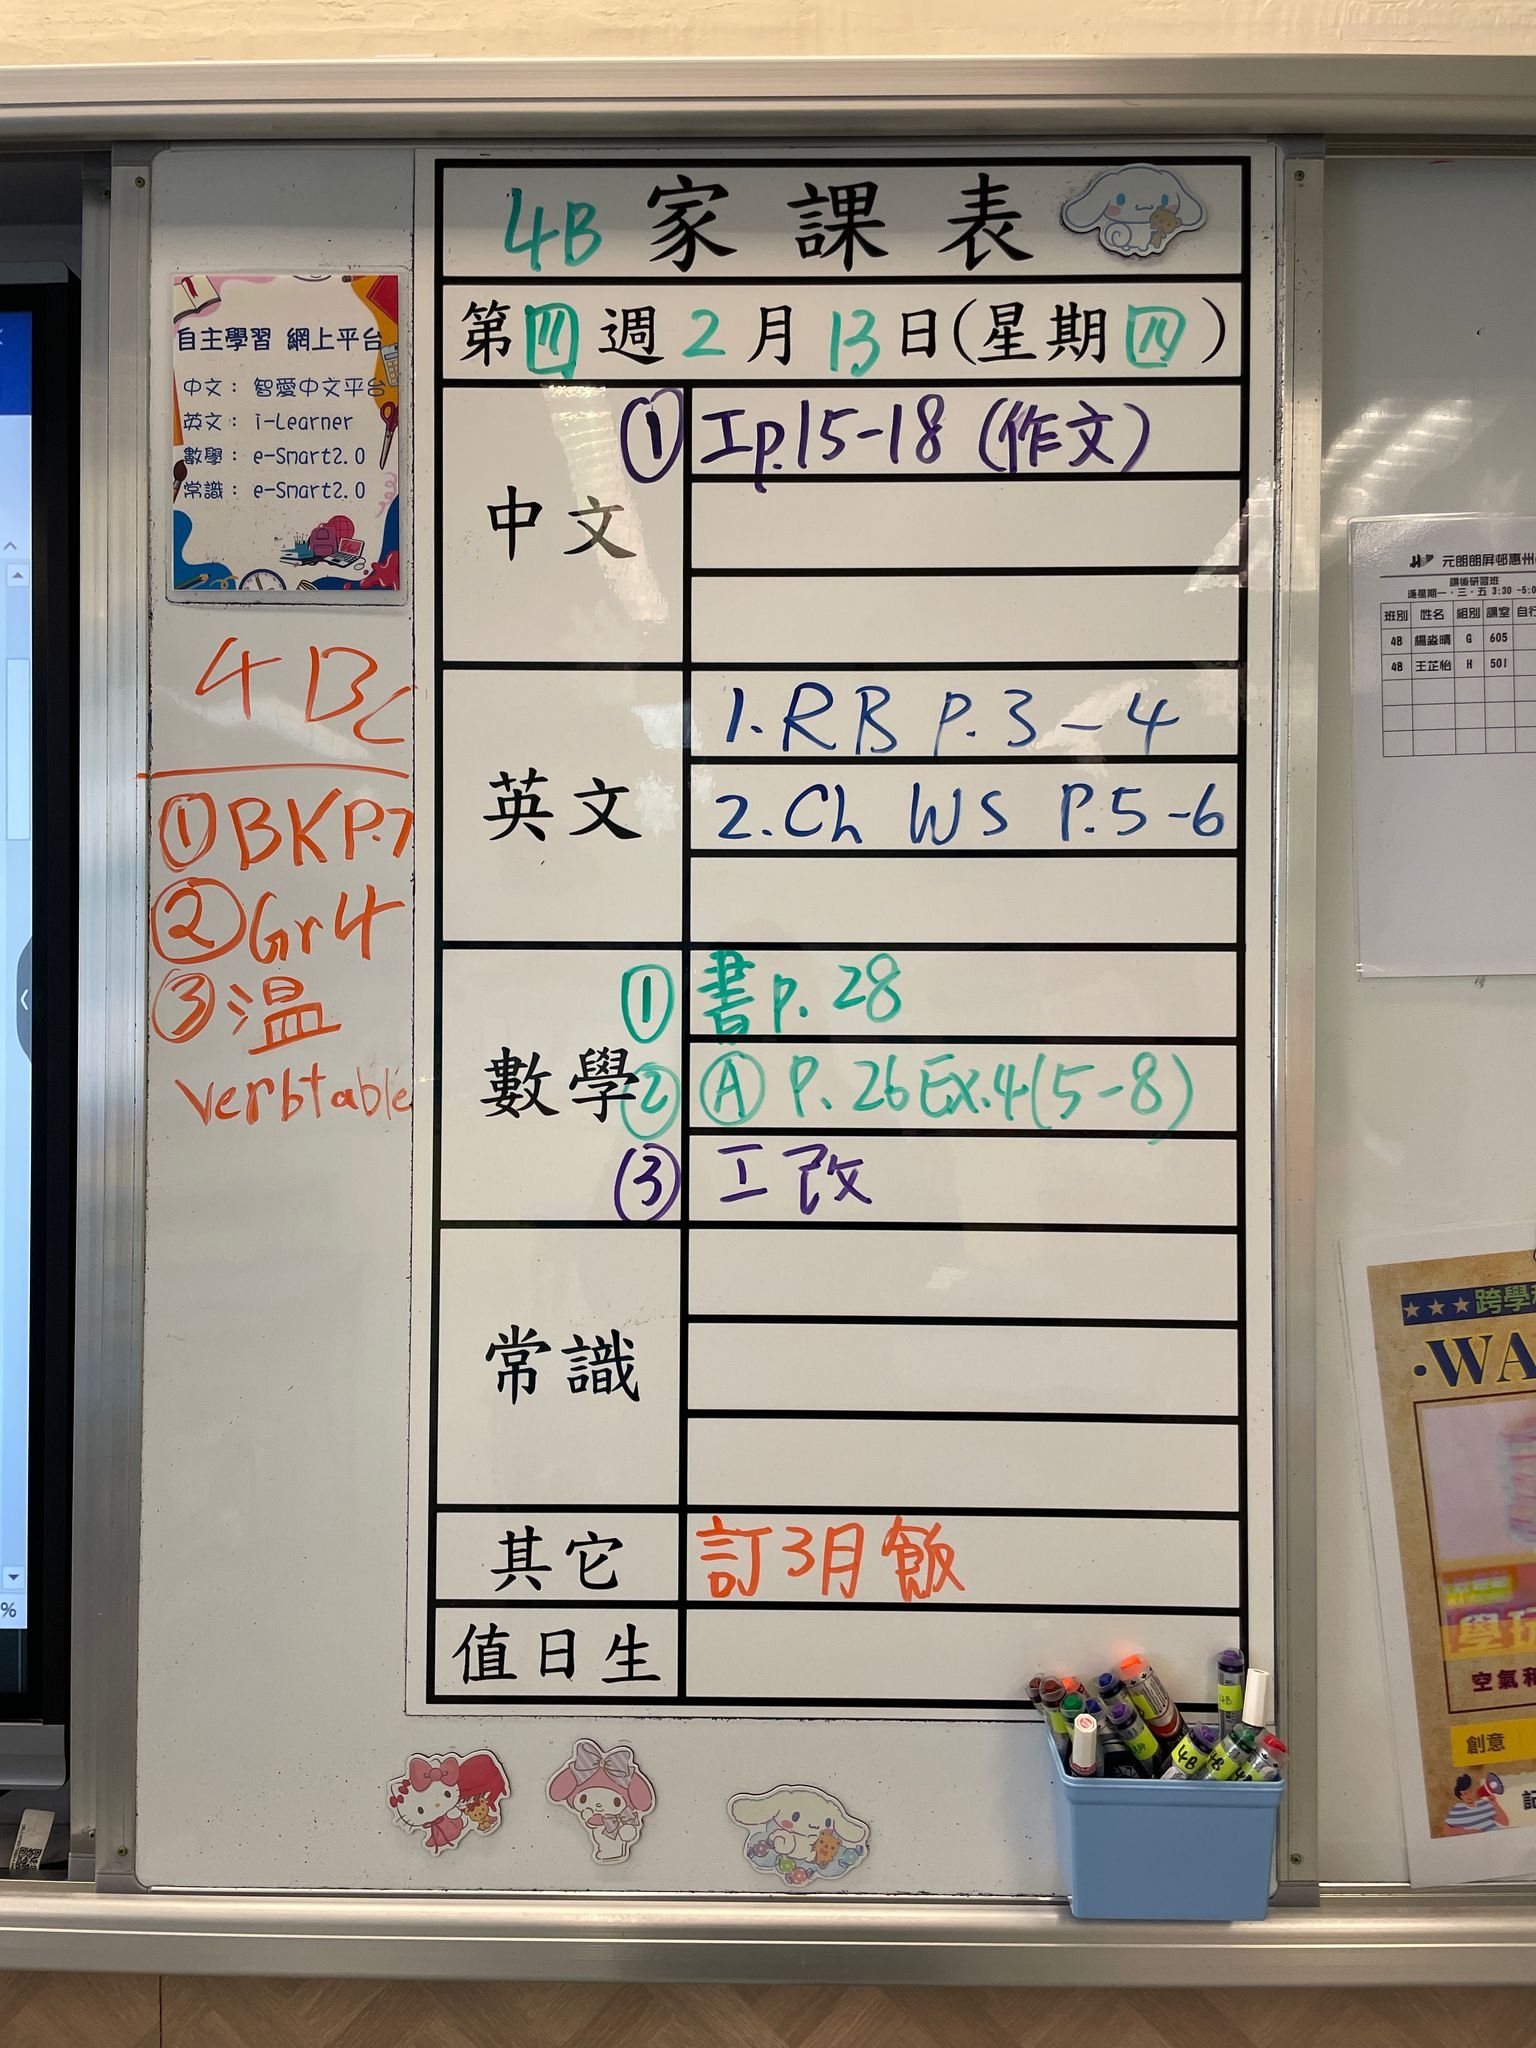 4B 家課表
第四週 2月13日(星期四)
中文
① 工p.15-18 (作文)
英文
1. RB P.3-4
2. Ch WS P.5-6
數學
① 書p.28
② Ⓐ P.26 Ex.4(5-8)
③ 工改
常識
其它
訂3月飯
值日生
自主學習 網上平台
中文： 智愛中文平台
英文： i-Learner
數學： e-Smart2.0
常識： e-Smart2.0
4BC
① BK P.7
② Gr4
③ 溫
verbtable
元朗朗屏邨惠州
課後研習班
逢星期一、三、五 3:30 ~5:0
班別 姓名 組別 課室 自行
4B 楊淼晴 G 605
4B 王芷怡 H 501
★★★跨學
·WA
學玩
空氣和
創意
記
%
4B
4B
4B